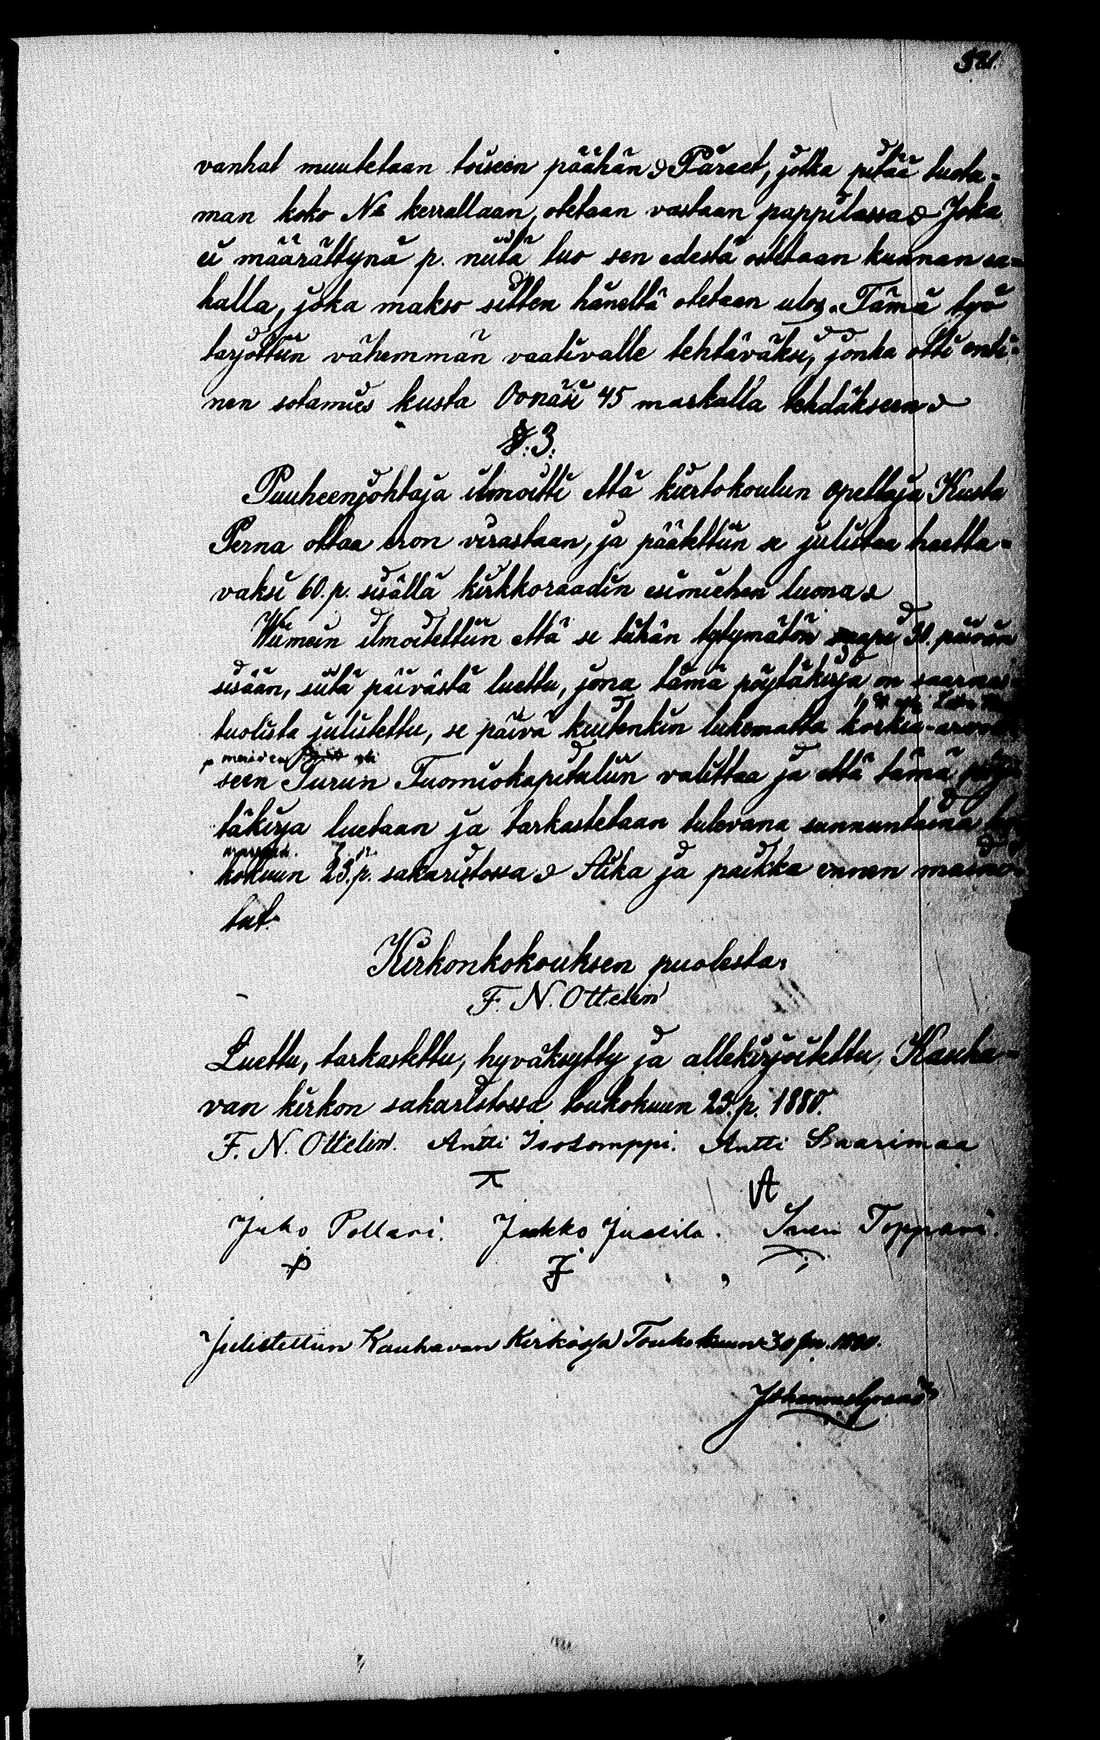 521.
vanhat muutetaan toiseen päähän. Päreet, jotka pitää tuota-
man koko No kerrallaan, otetaan vastaan pappilassa. Joka
ei määrättynä p. niitä tuo sen edestä ostetaan kunnan ra-
halla, joka makso sitten häneltä otetaan ulos. Tämä työ
tarjottiin vähemmän vaativalle tehtäväksi, jonka otti enti-
nen sotamies kusta Oonäsi 45 markalla tehdäkseen.
§. 3.
Puuheenjohtaja ilmoitti että kiertokoulun opettaja Kusta
Perna ottaa eron virastaan, ja päätettiin se julistaa haetta-
vaksi 60. p. sisällä kirkkoraadin esimiehen luona.
Wiimein ilmoitettiin että se tähän tytymätön saapi 30. päivän
sisään, siitä päivästä luettu, jona tämä pöytäkirja on saarna
tuolista julistettu, se päivä kuitenkin lukematta korkia-arvoi
seen Turun Tuomiokapituliin valittaa ja että tämä pöy
täkirja luetaan ja tarkastetaan tulevana sunnuntaina tou
kokuun 23. p. sakaristossa. Aika ja paikka ennen maini-
tut.
Kirkonkokouksen puolesta,
F. N. Ottelin
Luettu, tarkastettu, hyväksytty ja allekirjoitettu, Kauha-
van kirkon sakaristossa toukokuun 23. p. 1880.
F. N. Ottelin. Antti Isosomppi. Antti Saarimaa
A
Juho Pollari. Jaakko Jussila. Iveri Toppari.
P J
Julistettiin Kauhavan Kirkossa Toukokuun 30 p. 1880.